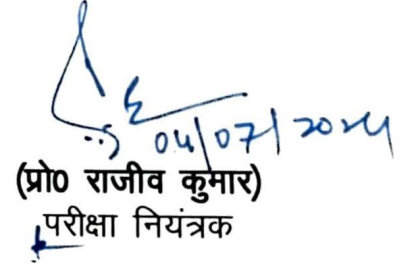 04/07/2024
(प्रो0 राजीव कुमार)
परीक्षा नियंत्रक